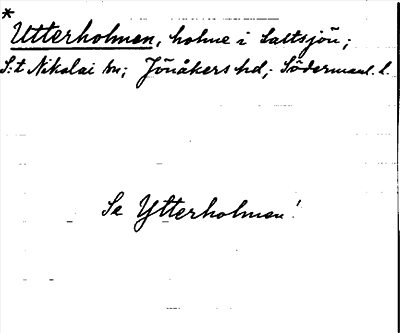 *
Utterholmen, holme i Saltsjön;
S:t Nikolai sn; Jönåkers hd; Södermanl. l.
Se Ytterholmen!